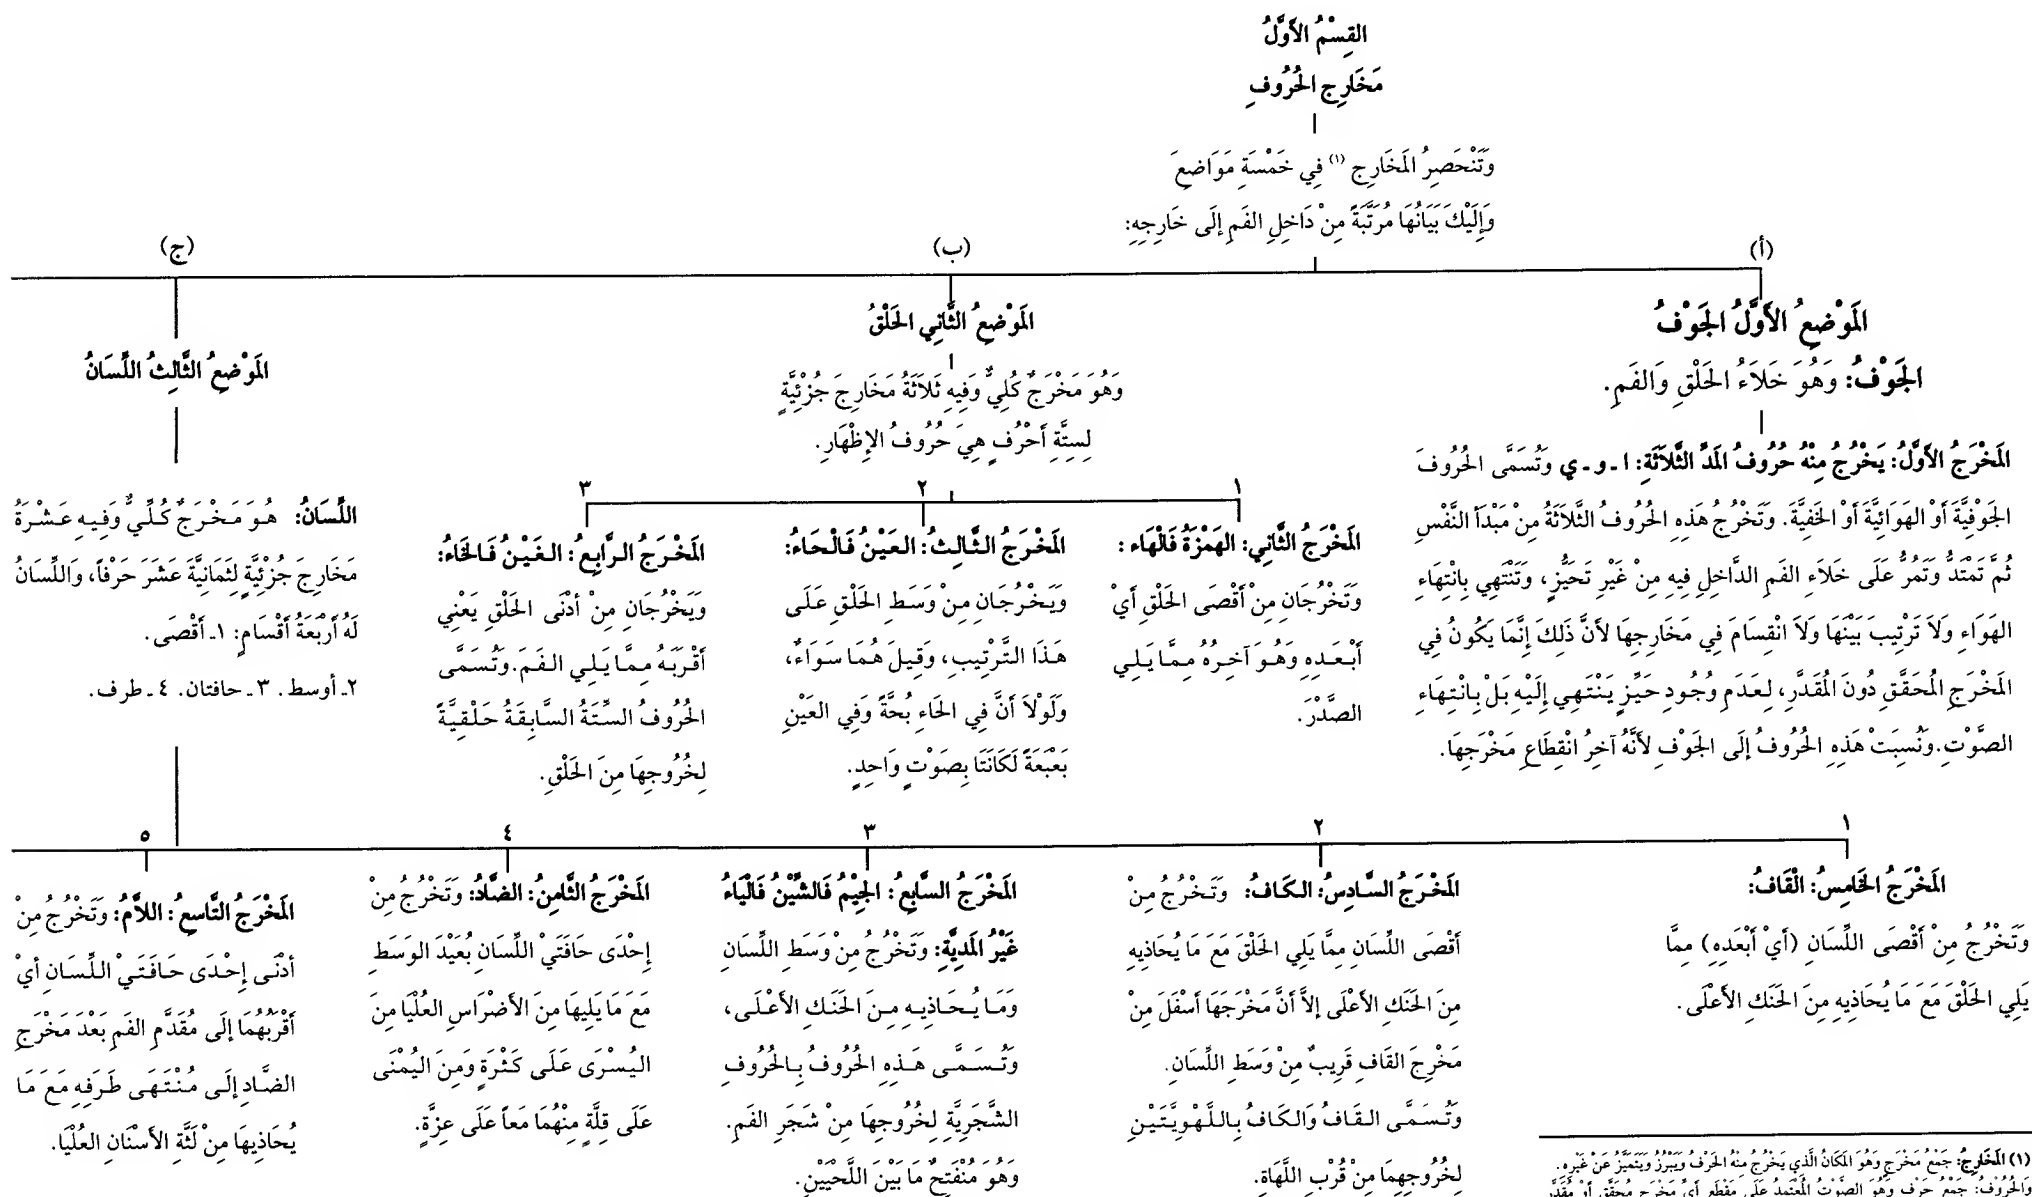 القِسْمُ الأَوَّلُ
مَخَارِج الحُرُوفِ
وَتَنْحَصِرُ المَخَارِج (١) فِي خَمْسَةِ مَوَاضِعَ
وَإِلَيْكَ بَيَانُهَا مُرَتَّبَةً مِنْ دَاخِلِ الفَمِ إلَى خَارِجِهِ:
(أ)
(ب)
(ج)
المَوْضِعُ الأَوَّلُ الجَوْفُ
الجَوْفُ: وَهُوَ خَلَاءُ الحَلْقِ وَالفَمِ.
المَخْرَجُ الأَوَّلُ: يَخْرُجُ مِنْهُ حُرُوفُ المَدِّ الثَّلاَثَةِ: ا ـ و ـ ي وَتُسَمَّى الحُرُوفَ
الجَوْفِيَّةَ أَوْ الهَوَائِيَّةَ أَوْ الخَفِيَّةَ. وَتَخْرُجُ هَذِهِ الحُرُوفُ الثَّلاَثَةُ مِنْ مَبْدَأ النَّفْسِ
ثُمَّ تَمْتَدُّ وَتَمُرُّ عَلَى خَلاَءِ الفَمِ الدَّاخِلِ فِيهِ مِنْ غَيْرِ تَحَيُّزٍ، وَتَنْتَهِي بِانْتِهَاءِ
الهَوَاءِ وَلاَ تَرْتِيبَ بَيْنَهَا وَلاَ انْقِسَامَ فِي مَخَارِجِهَا لأَنَّ ذَلِكَ إنَّمَا يَكُونُ فِي
المَخْرَجِ المُحَقَّقِ دُونَ المُقَدَّرِ، لِعَدَمِ وُجُودِ حَيِّزٍ يَنْتَهِي إِلَيْهِ بَلْ بِانْتِهَاءِ
الصَّوْتِ. وَنُسِبَتْ هَذِهِ الحُرُوفُ إلَى الجَوْفِ لأَنَّهُ آخِرُ انْقِطَاعِ مَخْرَجِهَا.
المَوْضِعُ الثَّانِي الحَلْقُ
وَهُوَ مَخْرَجٌ كُلِيٌّ وَفِيهِ ثَلاَثَةُ مَخَارِجَ جُزْئِيَّةٍ
لِسِتِّةِ أَحْرُفٍ هِيَ حُرُوفُ الإِظْهَارِ.
١
المَخْرَجُ الثَّانِي: الهَمْزَةُ فَالْهَاء :
وَتَخْرُجَانِ مِنْ أَقْصَى الحَلْقِ أَيْ
أَبْعَدِهِ وَهُوَ آخِرُهُ مِمَّا يَلِي
الصَّدْرَ.
٢
المَخْرَجُ الثَّالِثُ: العَيْنُ فَالْحَاءُ:
وَيَخْرُجَانِ مِنْ وَسَطِ الحَلْقِ عَلَى
هَذَا التَّرْتِيبِ، وَقِيلَ هُمَا سَوَاءٌ،
وَلَوْلاَ أَنَّ فِي الحَاءِ بُحَّةً وَفِي العَيْنِ
بَعْبَعَةً لَكَانَتَا بِصَوْتٍ وَاحِدٍ.
٣
المَخْرَجُ الرَّابِعُ: الغَيْنُ فَالخَاءُ:
وَيَخْرُجَانِ مِنْ أدْنَى الحَلْقِ يَعْنِي
أَقْرَبَهُ مِمَّا يَلِي الفَمَ. وَتُسَمَّى
الحُرُوفُ السِّتَةُ السَّابِقَةُ حَلْقِيَّةً
لِخُرُوجِهَا مِنَ الحَلْقِ.
المَوْضِعُ الثَّالِثُ اللِّسَانُ
اللِّسَانُ: هُوَ مَخْرَجٌ كُلِّيٌّ وَفِيهِ عَشْرَةُ
مَخَارِجَ جُزْئِيَّةٍ لِثَمَانِيَّةَ عَشَرَ حَرْفاً، وَاللِّسَانُ
لَهُ أَرْبَعَةُ أَقْسَامٍ: ١ـ أَقْصَى.
٢ـ أوسط. ٣ ـ حافتان. ٤ ـ طرف.
١
المَخْرَجُ الخَامِسُ: الْقَافُ:
وَتَخْرُجُ مِنْ أَقْصَى اللِّسَانِ (أَيْ أَبْعَدِهِ) مِمَّا
يَلِي الحَلْقَ مَعَ مَا يُحَاذِيهِ مِنَ الحَنَكِ الأَعْلَى.
٢
المَخْرَجُ السَّادِسُ: الكَافُ: وَتَخْرُجُ مِنْ
أَقْصَى اللسَانِ مِمَّا يَلِي الحَلْقَ مَعَ مَا يُحَاذِيهِ
مِنَ الحَنَكِ الأَعْلَى إلاَّ أَنَّ مَخْرَجَهَا أَسْفَلَ مِنْ
مَخْرِجَ القَافِ قَرِيبٌ مِنْ وَسَطِ اللِّسَانِ.
وَتُسَمَّى القَافُ وَالكَافُ بِاللَّهْوِيَّتَيْنِ
لِخُرُوجِهِمَا مِنْ قُرْبِ اللَّهَاةِ.
٣
المَخْرَجُ السَّابِعُ: الجِيْمُ فَالشَّيْنُ فَالْيَاءُ
غَيْرُ المَدِيَّةِ: وَتَخْرُجُ مِنْ وَسَطِ اللِّسَانِ
وَمَا يُحَاذِيهِ مِنَ الحَنَكِ الأَعْلَى،
وَتُسَمَّى هَذِهِ الحُرُوفُ بِالحُرُوفِ
الشَّجَرِيَّةِ لِخُرُوجِهَا مِنْ شَجَرِ الفَمِ.
وَهُوَ مُنْفَتِحٌ مَا بَيْنَ اللَّحْيَيْنِ.
٤
المَخْرَجُ الثَّامِنُ: الضَّادُ: وَتَخْرُجُ مِنْ
إِحْدَى حَافَتَيْ اللِّسَانِ بُعَيْدَ الوَسَطِ
مَعَ مَا يَلِيهَا مِنَ الأَضْرَاسِ العُلْيَا مِنَ
اليُسْرَى عَلَى كَثْرَةٍ وَمِنَ اليُمْنَى
عَلَى قِلَّةٍ مِنْهُمَا مَعاً عَلَى عِزَّةٍ.
٥
المَخْرَجُ التَّاسِعُ: اللاَّمُ: وَتَخْرُجُ مِنْ
أدْنَى إحْدَى حَافَتَيْ اللِّسَانِ أيْ
أَقْرَبُهُمَا إلَى مُقَدَّمِ الفَمِ بَعْدَ مَخْرَجِ
الضَّادِ إلَى مُنْتَهَى طَرَفِهِ مَعَ مَا
يُحَاذِيهَا مِنْ لَثَّةِ الأَسْنَانِ العُلْيَا.
(١) المَخَارِجُ: جَمْعُ مَخْرَجٍ وَهُوَ المَكَانُ الَّذِي يَخْرُجُ مِنْهُ الحَرْفُ وَيَبْرُزُ وَيَتَمَيَّزُ عَنْ غَيْرِهِ.
وَالحُرُوفُ: جَمْعُ حَرْفٍ وَهُوَ الصَّوْتُ المُعْتَمِدُ عَلَى مَقْطَعٍ أَيْ مَخْرَجٍ مُحَقَّقٍ أَوْ مُقَدَّرٍ